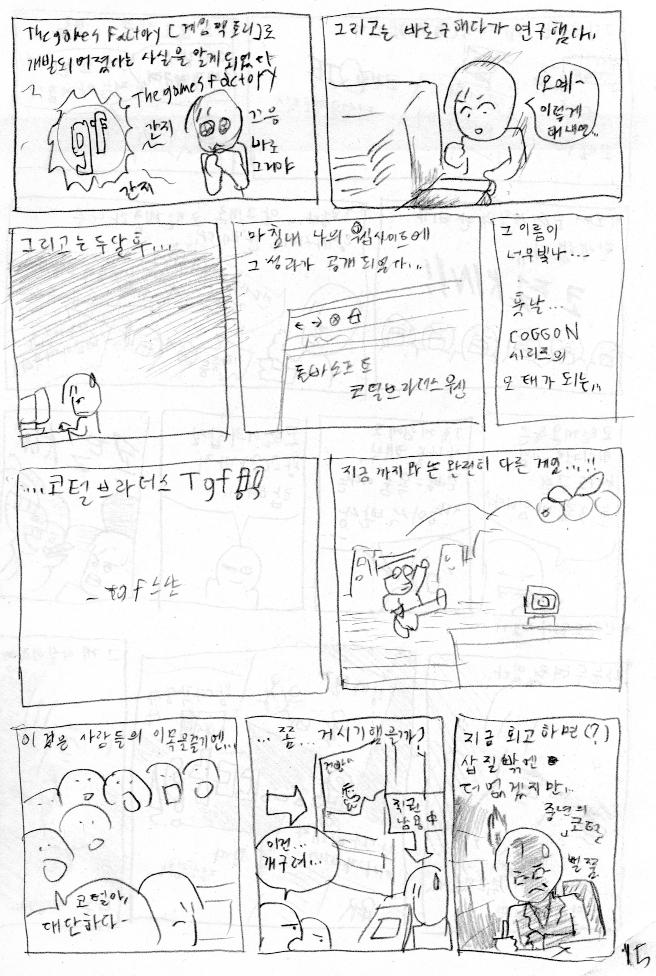 The games Factory [게임팩토리]로
개발되어졌다는 사실을 알게되었다
The games factory
gf
간지
간지
끄응
바로
그거야
그리고는 바로구해다가 연구했다..
오예~
이렇게
해내면..
그리고는 두달후...
마침내 나의 웹사이트에
그성과가 공개되었다...
돌바소프트
코털브라더스웹
그이름이
너무빛나...
훗날...
COGGON
시리즈의
모태가 되는...
...코털브라더스 Tgf
- tgf
지금까지와는 완전히 다른게임...!!
이것은 사람들의 이목을끌기엔...
코털아,
대단하다
...쫌... 거시기했을까?
직권
남용中
이건..
개구려...
지금 회고하면(?)
삽질밖엔
더없겠지만..
중년의
코털
뻘쭘
15